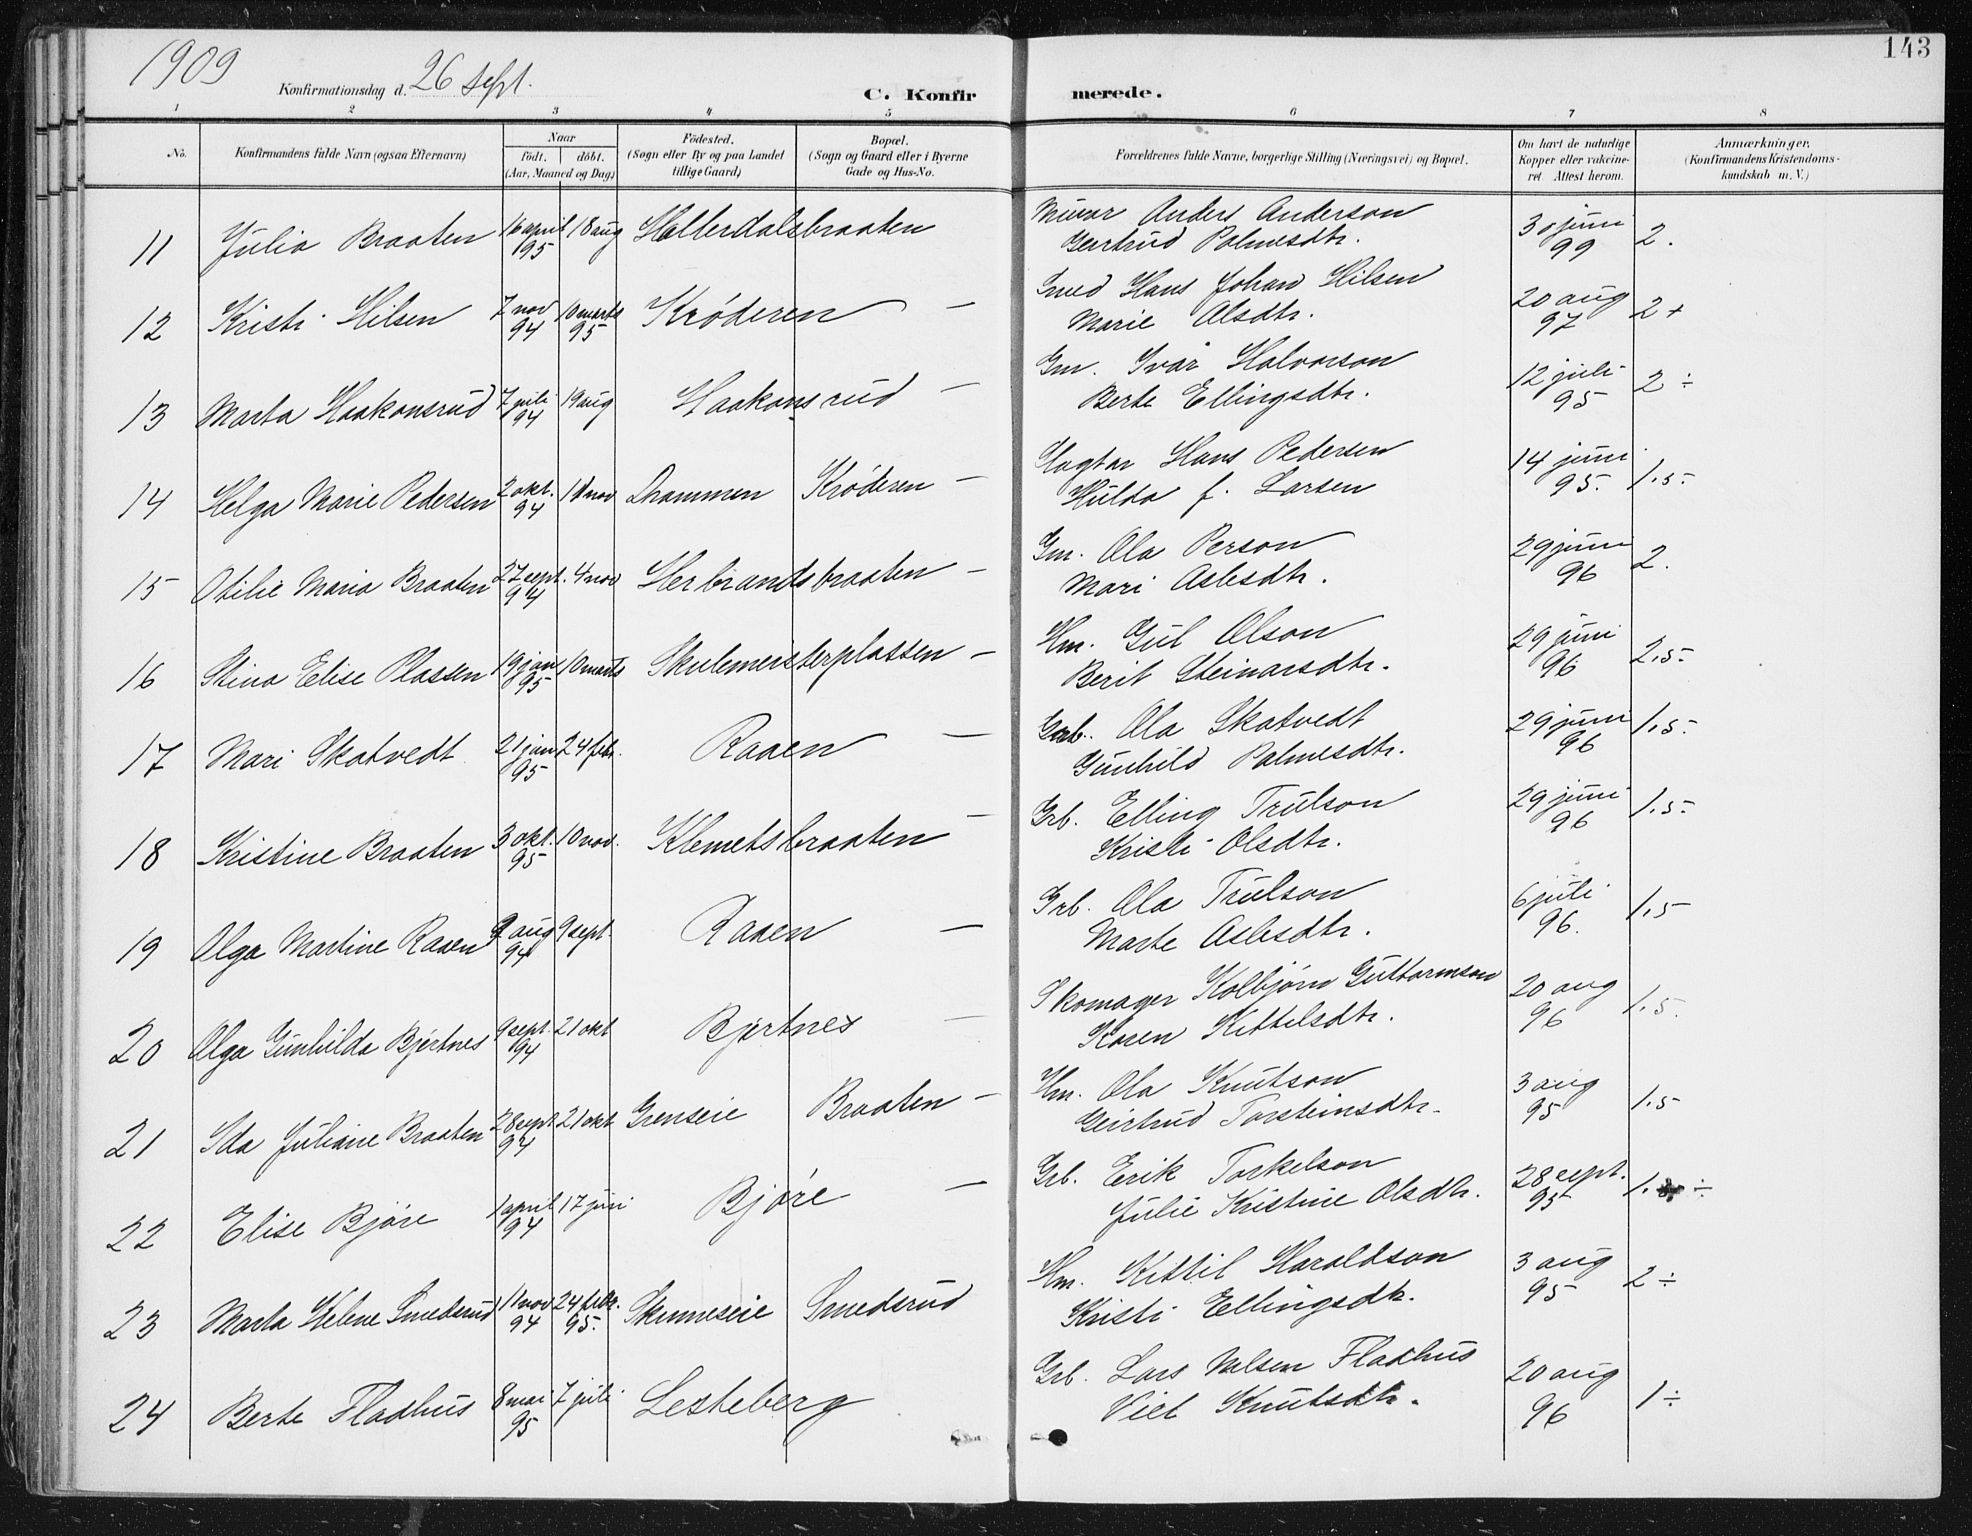 143
1909
Konfirmationsdag d. 26 sept.
C. Konfirmerede.
1 2 3 4 5 6 7 8
No.
Konfirmandens fulde Navn (ogsaa Efternavn)
Naar
födt. döbt.
(Aar, Maaned og Dag)
Födested.
(Sogn eller By og paa Landet
tillige Gaard)
Bopæl.
(Sogn og Gaard eller i Byerne
Gade og Hus-No.
Forældrenes fulde Navne, borgerlige Stilling (Næringsvei) og Bopæl.
Om havt de naturlige
Kopper eller vakcine-
ret Attest herom.
Anmærkninger.
(Konfirmandens Kristendoms-
kundskab m. V.)
11 Julia Braaten 16 april 95 18 aug Hollerdalsbraaten Murar Anders Anderson 30 juni 99 2.
Gertrud Palmesdtr.
12 Kristi Hilsen 7 nov 94 10 marts 95 Krøderen — Smed Hans Johan Hilsen 20 aug 97 2+
Marie Alsdtr.
13 Marta Haakonsrud 7 juli 94 19 aug Haakonsrud — Gm. Ivar Halvorson 12 juli 95 2 ÷
Berte Ellingsdtr.
14 Helga Marie Pedersen 2 okt. 94 11 nov Drammen Krøderen — Hans Pedersen 14 juni 95. 1.5
Hulda f. Larsen
15 Otilie Maria Braaten 27 sept. 94 4 nov Herbrandsbraaten — Gm. Ola Person 29 juni 96 2.
Mari Aslesdtr.
16 Stina Elise Plassen 19 jan 95 10 marts Skulemeisterplassen — Hm. Gul Olson 29 juni 96 2.5
Berit Steinarsdtr.
17 Mari Skatvedt 21 jan 95 24 febr. Raaen — Grb. Ola Skatvedt 29 juni 96 1.5
Gunhild Palmesdtr.
18 Kristine Braaten 3 okt. 95 10 nov. Klemetsbraaten — Grb. Elling Trulson 29 juni 96 1.5
Kristi Olsdtr.
19 Olga Martine Raaen 9 aug 94 9 sept. Raaen — Grb. Ola Trulson 6 juli 96. 1.5
Marte Aslesdtr.
20 Olga Gunhilda Bjertnes 9 sept. 94 21 okt Bjertnes — Skomager Kolbjørn Guttormson 20 aug 96 1.5.
Karen Kittelsdtr.
21 Ida Juliane Braaten 28 sept 94 21 okt Grenseie Braaten — Hm. Ola Knutson 3 aug 95 1.5
Geirtrud Torsteinsdtr.
22 Elise Bjøre 1 april 94 17 juni Bjøre — Grb. Erik Torkelson 28 sept. 95 1. ÷
Julie Kristine Olsdtr.
23 Marta Helene Smedsrud 11 nov 94 24 febr. 95. Skinneseie Smedsrud Hm. Kittil Haraldson 3 aug 95 2 ÷
Kristi Ellingsdtr.
24 Berte Fladhus 8 mai 95 7 juli Lesteberg Grb. Lars Nelsen Fladhus 20 aug 96 1 ÷
Viel Knutsdtr.